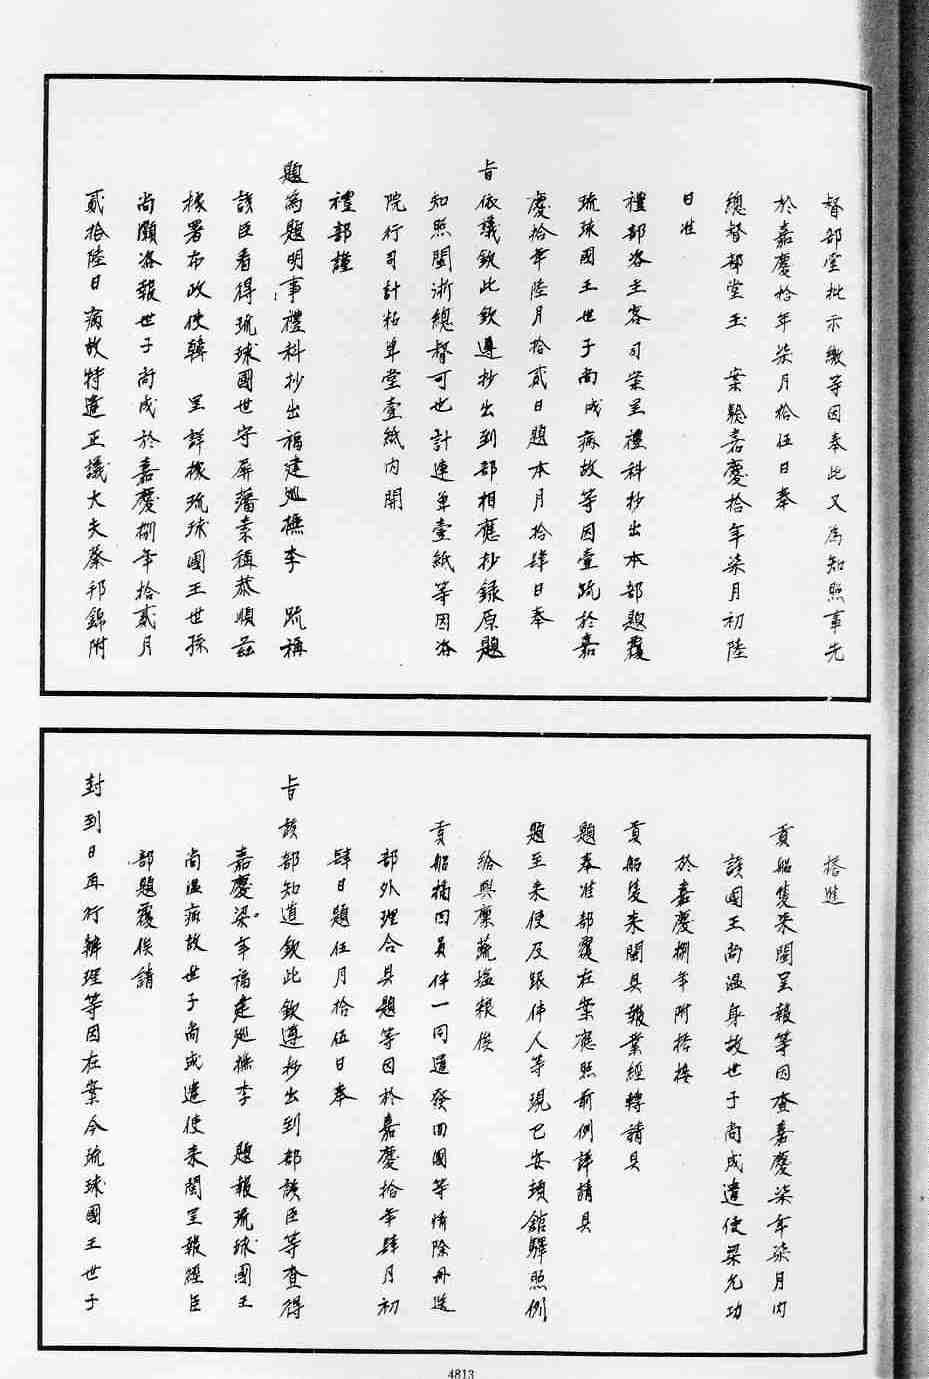 督部堂批示繳等因奉此又為知照事先
於嘉慶拾年柒月拾伍日奉
總督部堂玉 案驗嘉慶拾年柒月初陸
日准
禮部咨主客司案呈禮科抄出本部題覆
琉球國王世子尚成病故等因壹疏於嘉
慶拾年陸月拾貳日題本月拾肆日奉
旨依議欽此欽遵抄出到部相應抄錄原題
知照閩浙總督可也計連單壹紙等因咨
院行司計粘單壹紙內開
禮部謹
題為題明事禮科抄出福建廵撫李 疏稱
該臣看得琉球國世守屏藩素稱恭順茲
據署布政使韓 呈詳據琉球國王世孫
尚灝咨報世子尚成於嘉慶捌年拾貳月
貳拾陸日病故特遣正議大夫蔡邦錦附
搭進
貢船隻來閩呈報等因查嘉慶柒年柒月內
該國王尚溫身故世子尚成遣使梁允功
於嘉慶捌年附搭接
貢船隻來閩具報業經轉請具
題奉准部覆在案應照前例詳請具
題至來使及跟伴人等現已安頓館驛照例
給與廩蔬塩粮俟
貢船摘回員伴一同遣發回國等情除冊送
部外理合具題等因於嘉慶拾年肆月初
肆日題伍月拾伍日奉
旨該部知道欽此欽遵抄出到部該臣等查得
嘉慶柒年福建廵撫李 題報琉球國王
尚溫病故世子尚成遣使來閩呈報經臣
部題覆俟請
封到日再行辦理等因在案今琉球國王世子
4813